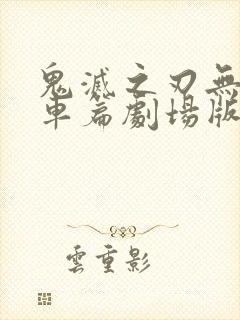 鬼滅之刃無
車篇劇場版
雲重影